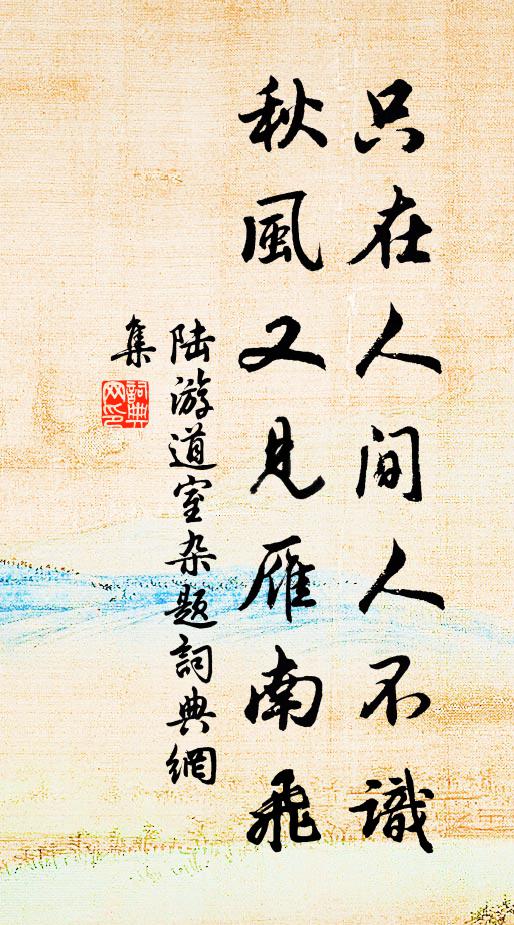 只在人间人不識
秋風又见雁南飛
陆游道室杂题詞典網
集
詞典网印